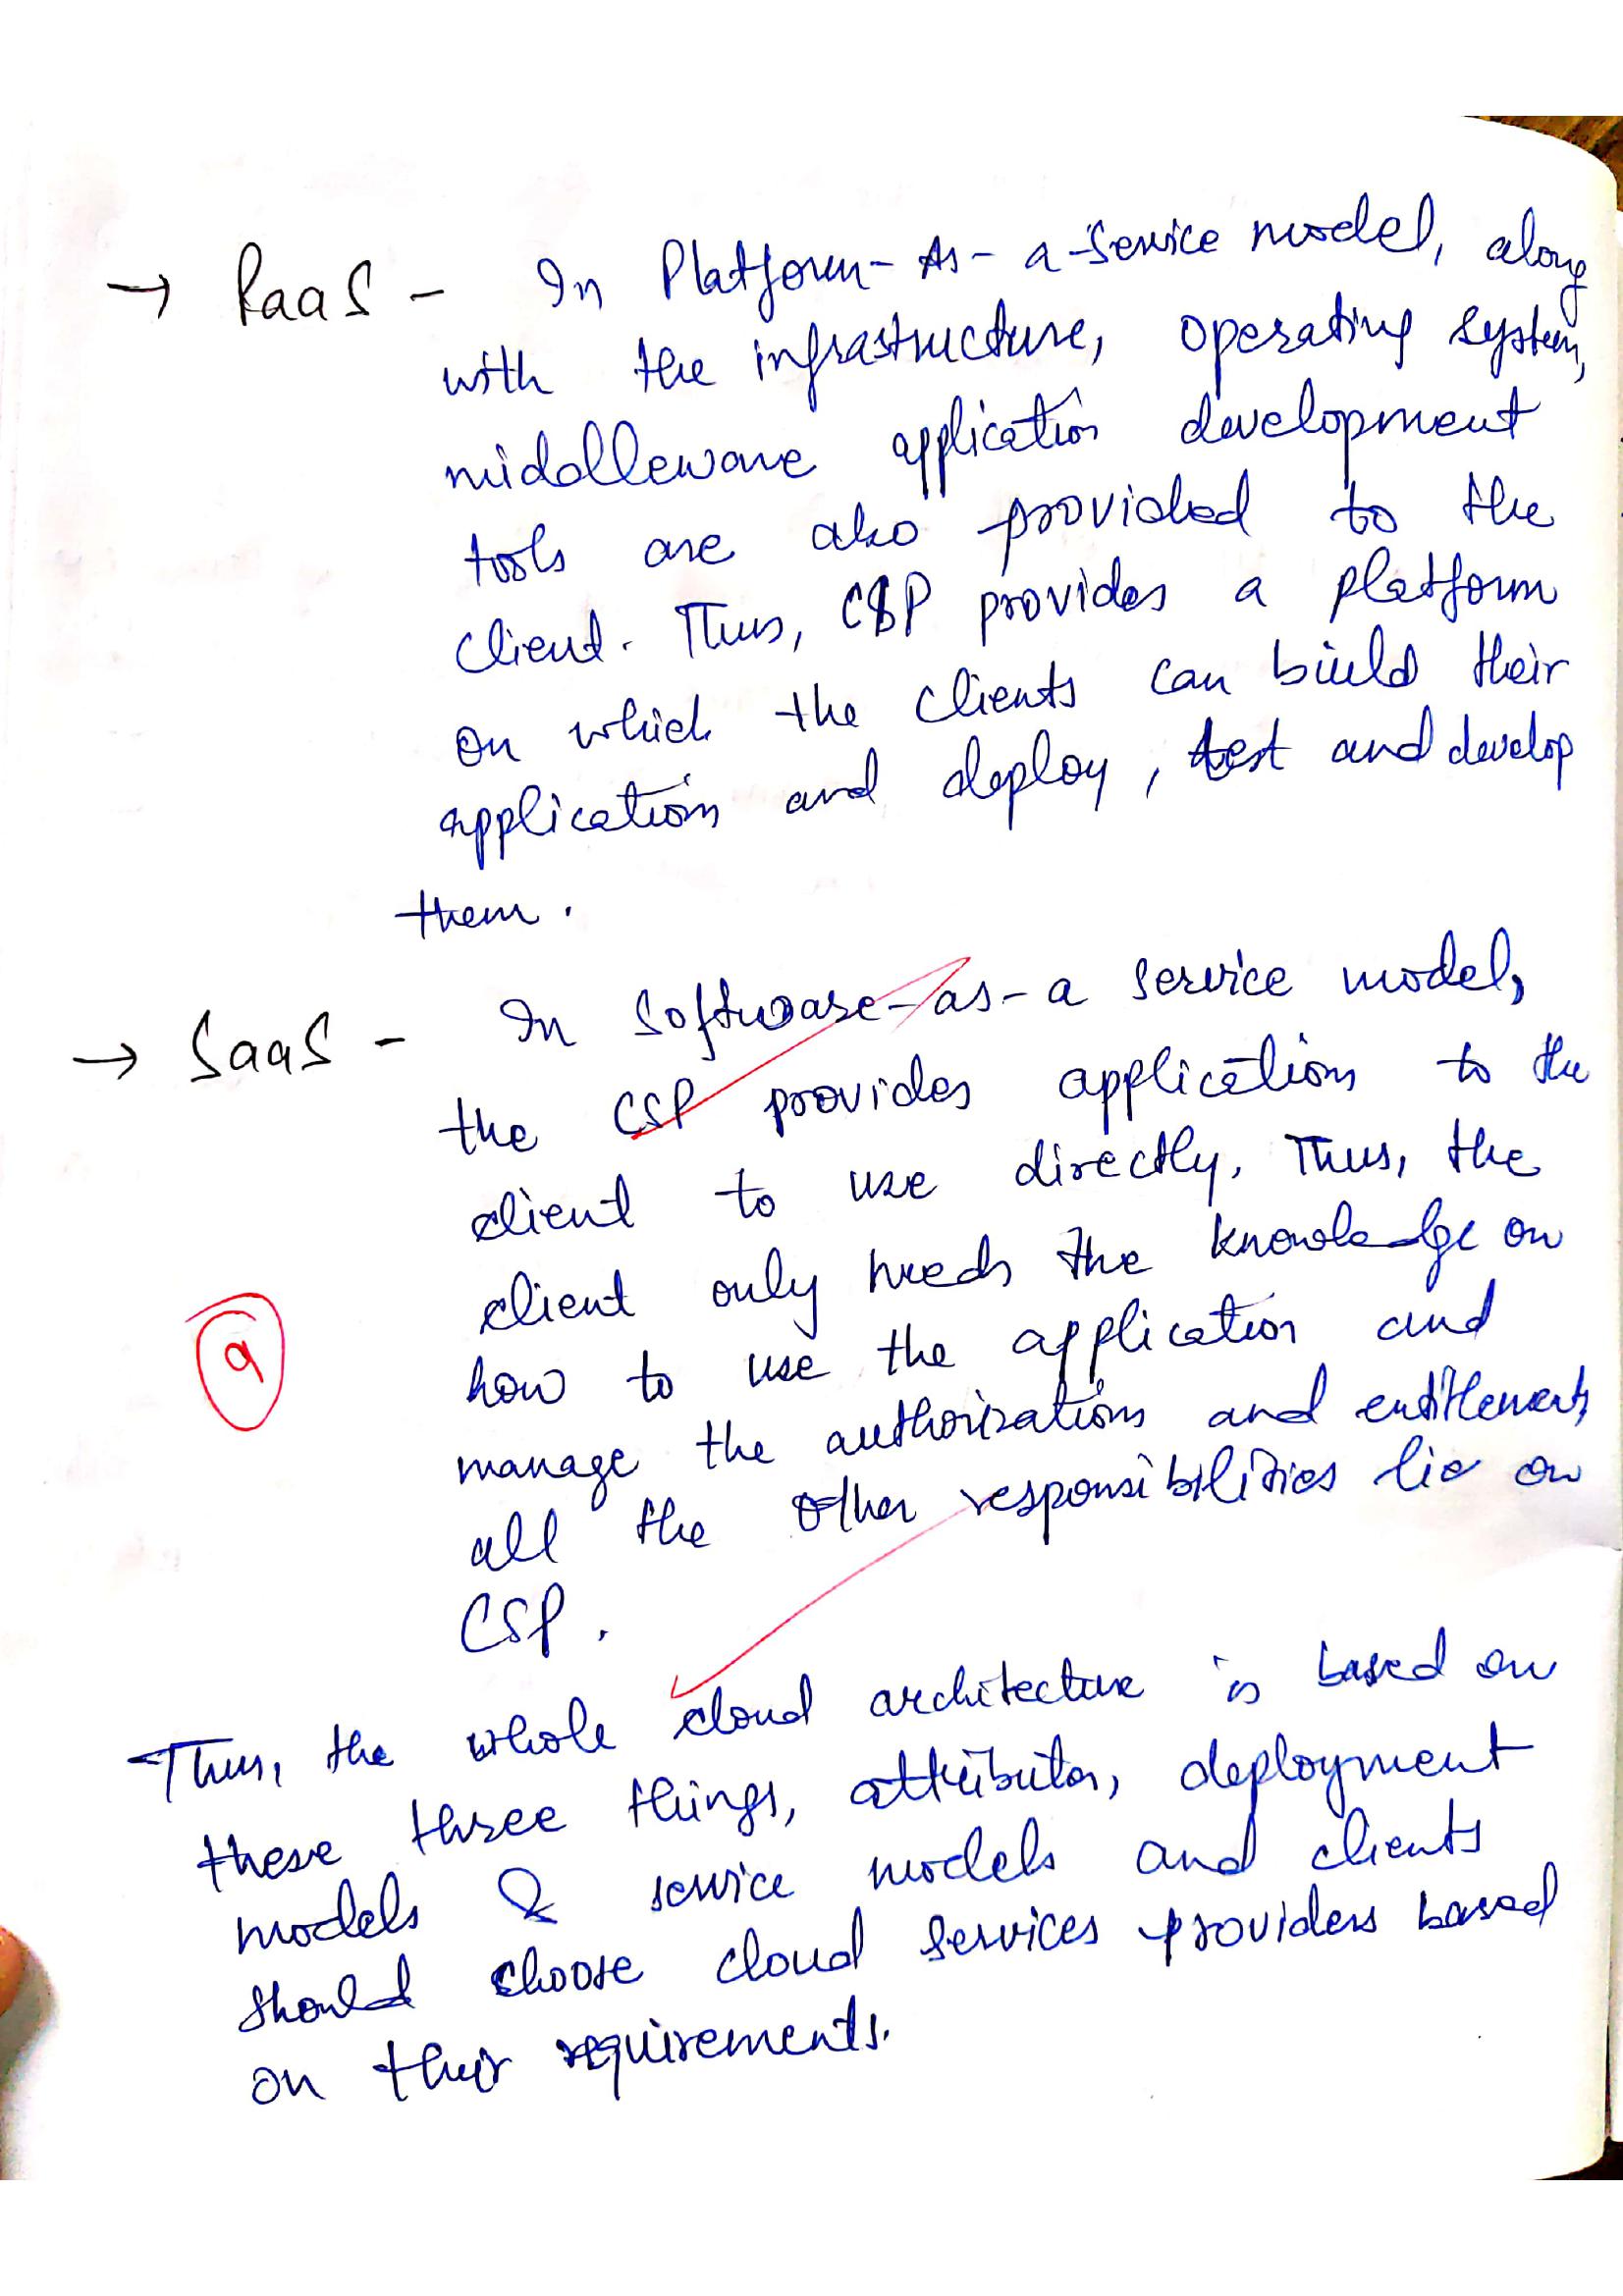 → PaaS - In Platform - As - a - Service model, along
with the infrastructure, operating system,
middleware application development
tools are also provided to the
client. Thus, CSP provides a platform
on which the clients can build their
application and deploy, test and develop
them.
→ SaaS - In Software - as - a service model,
the CSP provides applications to the
client to use directly. Thus, the
client only needs the knowledge on
how to use the application and
manage the authorizations and entitlements,
all the other responsibilities lie on
CSP.
9
Thus, the whole cloud architecture is based on
these three things, attributes, deployment
models & service models and clients
should choose cloud services providers based
on their requirements.